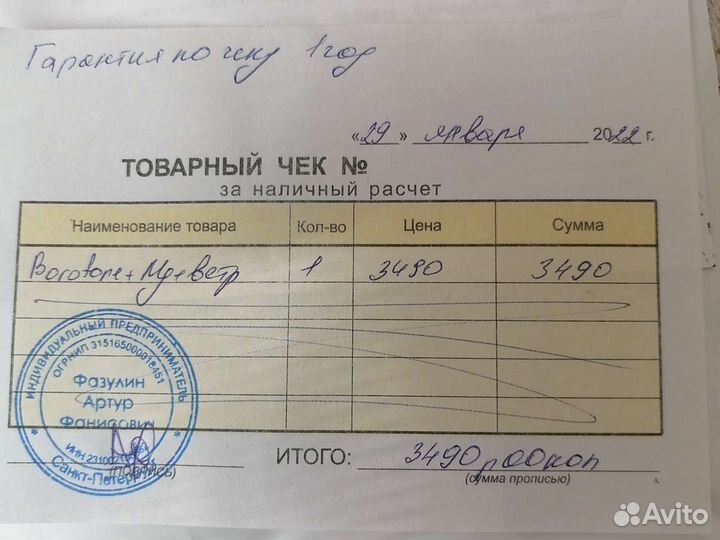 Гарантия по чеку 1 год
«29» января 2022 г.
ТОВАРНЫЙ ЧЕК №
за наличный расчет
Наименование товара Кол-во Цена Сумма
1 3490 3490
ИНДИВИДУАЛЬНЫЙ ПРЕДПРИНИМАТЕЛЬ
ОГРНИП 315165000018451
Фазулин
Артур
Фанисович
ИНН
Санкт-Петербург
(подпись)
ИТОГО: 3490 р 00 коп
(сумма прописью)
Avito